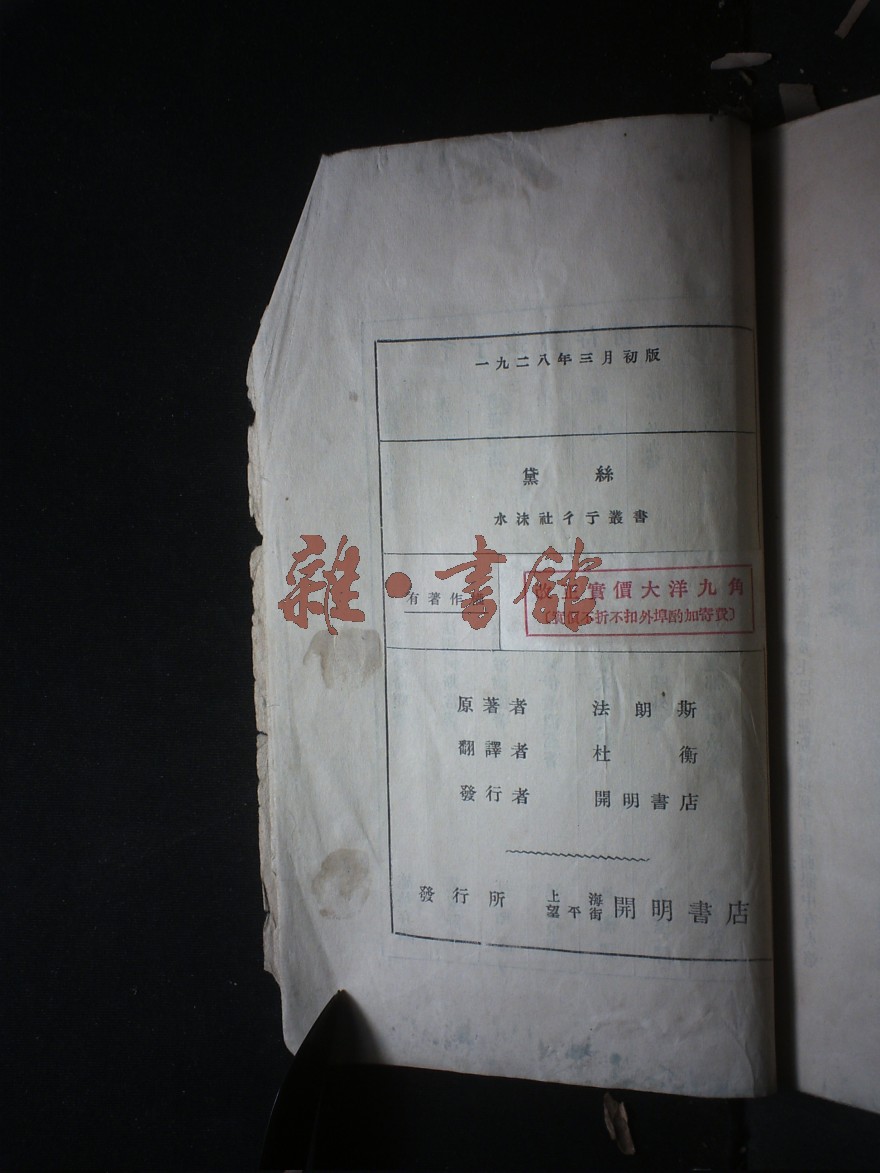 一九二八年三月初版
黛絲
水沫社彳亍叢書
有著作權
改正實價大洋九角
(實價不折不扣外埠酌加寄費)
原著者 法朗斯
翻譯者 杜衡
發行者 開明書店
發行所 上海望平街開明書店
雜·書館